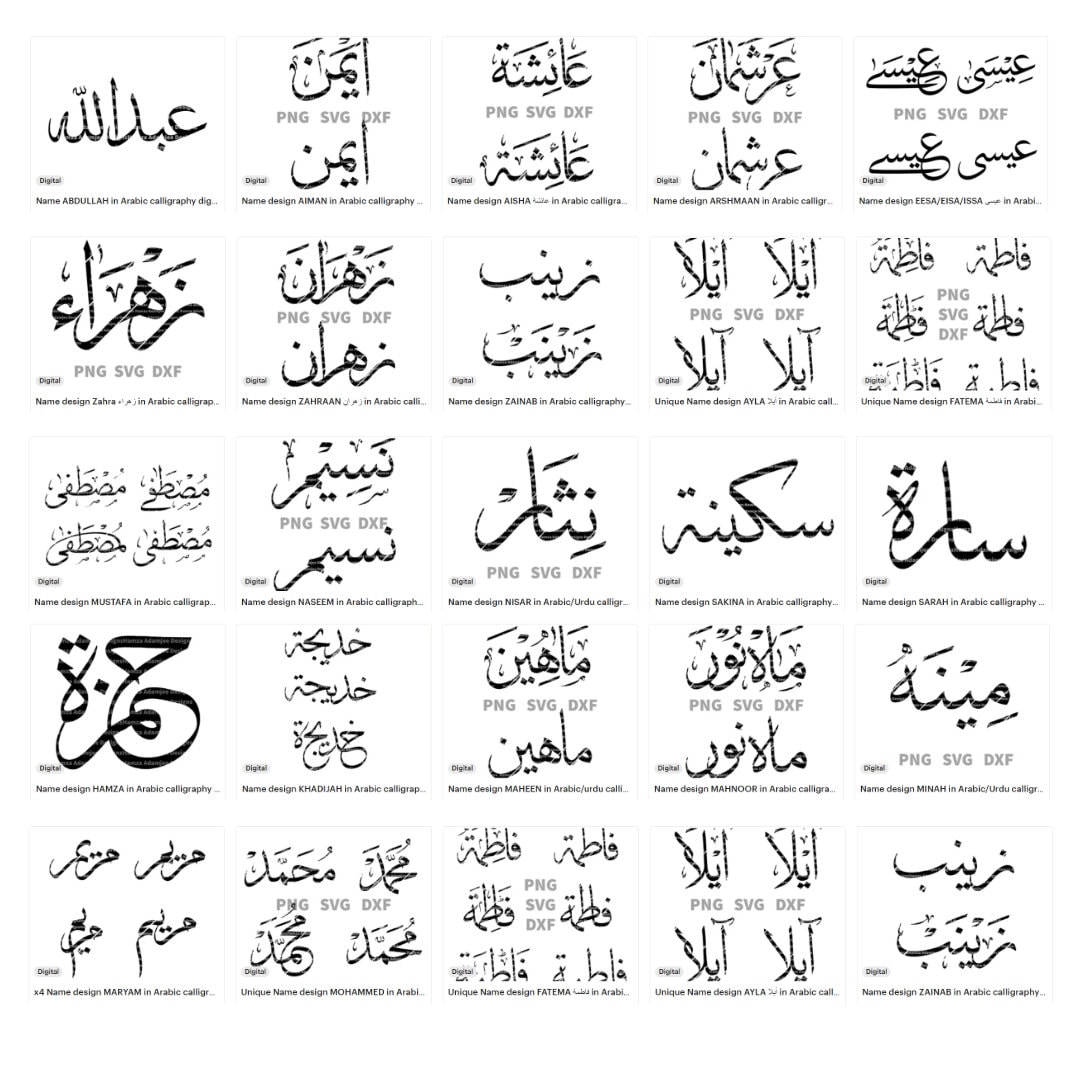 عبدالله
Digital
Name ABDULLAH in Arabic calligraphy dig...
أَيْمَن
PNG SVG DXF
أيمن
Digital
Name design AIMAN in Arabic calligraphy ...
عَائِشَة
PNG SVG DXF
عَائِشَة
Digital
Name design AISHA عائشة in Arabic calligra...
عَرْشمَان
PNG SVG DXF
عرشمان
Digital
Name design ARSHMAAN in Arabic calligr...
عِيْسَى عِيْسَے
PNG SVG DXF
عيسى عيسے
Digital
Name design EESA/EISA/ISSA عيسى in Arabi...
زَهْرَاء
PNG SVG DXF
Digital
Name design Zahra زهراء in Arabic calligrap...
زَهْرَان
PNG SVG DXF
زهران
Digital
Name design ZAHRAAN زهران in Arabic calli...
زينب
زَيْنَب
Digital
Name design ZAINAB in Arabic calligraphy...
اَيْلَا اَيْلَا
PNG SVG DXF
آيلا آيلا
Digital
Unique Name design AYLA ايلا in Arabic call...
فاطمة فاطمة
PNG
SVG
DXF
فاطمة فاطمة
فاطمة فاطمة
Digital
Unique Name design FATEMA فاطمة in Arabi...
مُصْطَفٰے مُصْطَفٰى
مُصْطَفٰى مُصْطَفٰى
Digital
Name design MUSTAFA in Arabic calligrap...
نَسِيْم
PNG SVG DXF
نسيم
Digital
Name design NASEEM in Arabic calligraph...
نِثَار
PNG SVG DXF
Digital
Name design NISAR in Arabic/Urdu calligr...
سكينة
Digital
Name design SAKINA in Arabic calligraphy...
سارة
Digital
Name design SARAH in Arabic calligraphy ...
حمزة
Digital
Name design HAMZA in Arabic calligraphy ...
خديجة
خديجة
خديجة
Digital
Name design KHADIJAH in Arabic calligrap...
مَاهِيْن
PNG SVG DXF
ماهين
Digital
Name design MAHEEN in Arabic/urdu calli...
مَاہنُوْر
PNG SVG DXF
ماہ نور
Digital
Name design MAHNOOR in Arabic calligra...
مِيْنَهُ
PNG SVG DXF
Digital
Name design MINAH in Arabic/Urdu calligr...
مريم مريم
مريم مريم
Digital
x4 Name design MARYAM in Arabic calligr...
مُحَمَّد مُحَمَّد
PNG SVG DXF
مُحَمَّد مُحَمَّد
Digital
Unique Name design MOHAMMED in Arabi...
فاطمة فاطمة
PNG
SVG
DXF
فاطمة فاطمة
فاطمة فاطمة
Digital
Unique Name design FATEMA فاطمة in Arabi...
اَيْلَا اَيْلَا
PNG SVG DXF
آيلا آيلا
Digital
Unique Name design AYLA ايلا in Arabic call...
زينب
زَيْنَب
Digital
Name design ZAINAB in Arabic calligraphy...